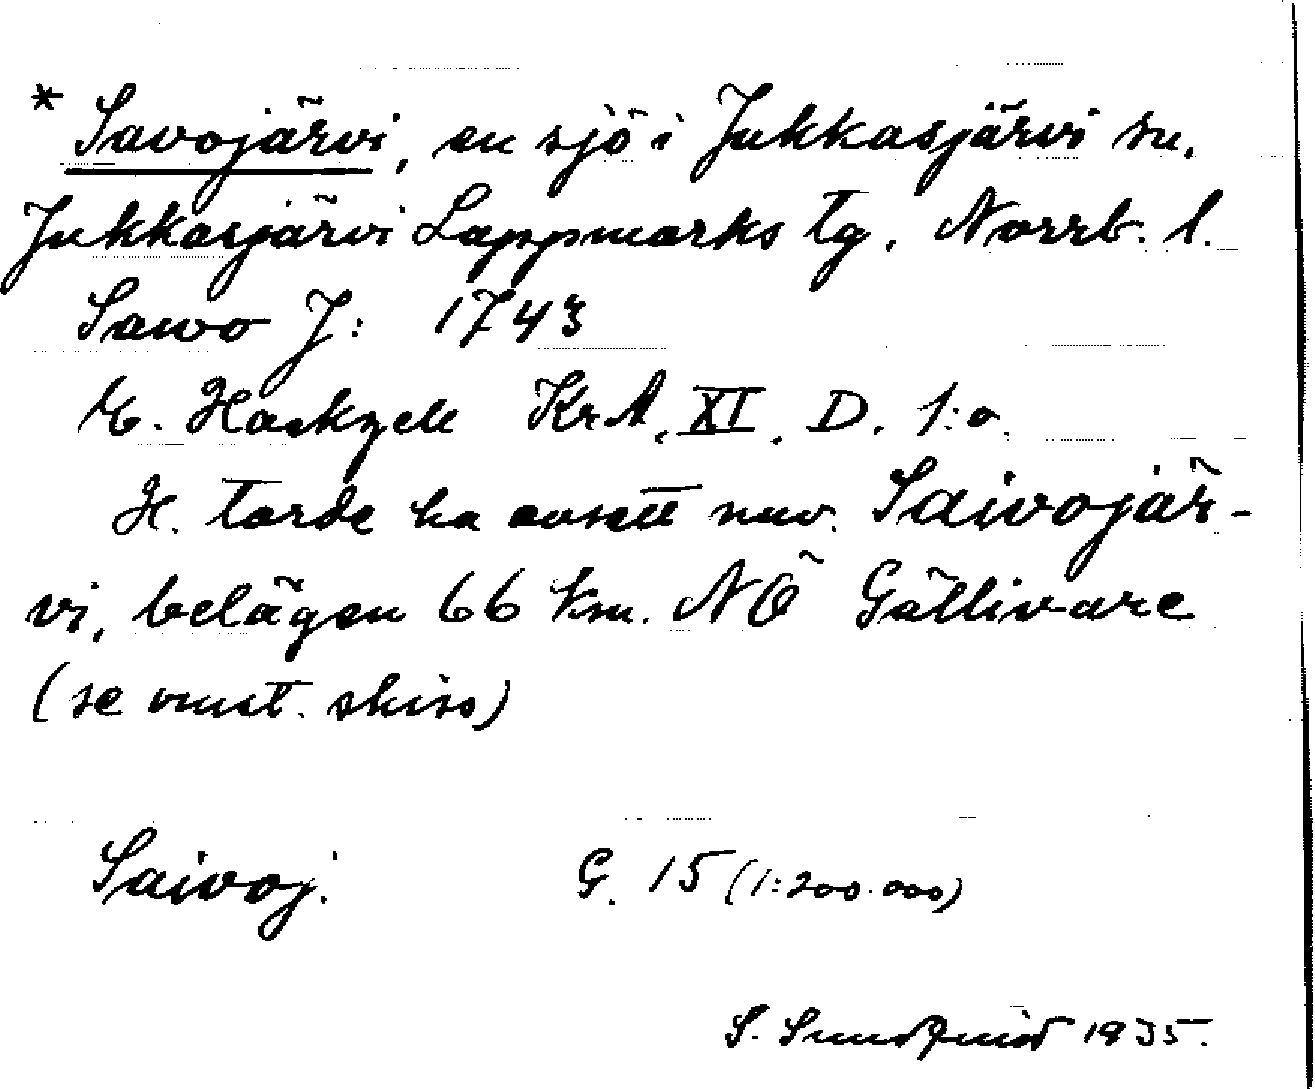 * Savojärvi, en sjö i Jukkasjärvi sn.
Jukkasjärvi Lappmarks tg. Norrb. l.
Sawo J: 1743
E. Hackzell KrA, XI. D. 1:a.
H. torde ha avsett nuv. Saivojär-
vi, belägen 66 km. NÖ Gällivare
(se vmst. skiss)
Saivoj. G. 15 (1:200.000)
S. Sundqvist 1935.